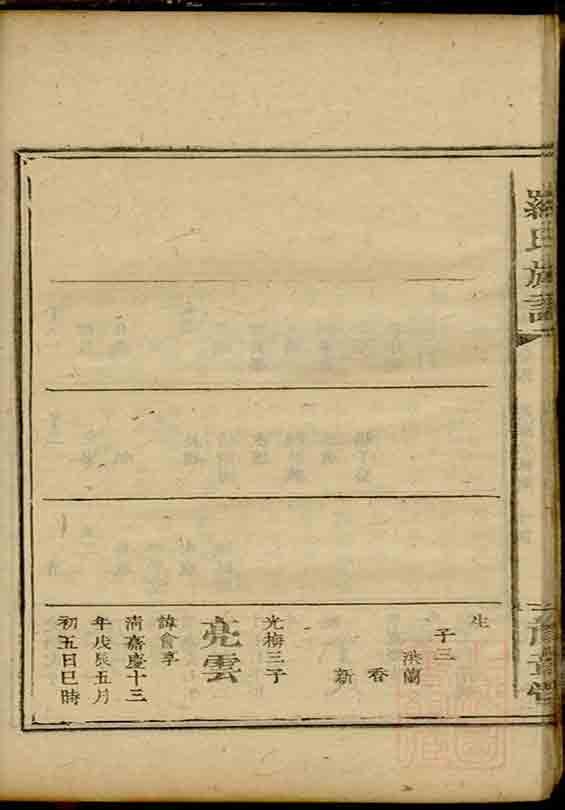 羅氏族譜
生
子三
洪蘭
香
新
光梅三子
亮雲
諱會享
清嘉慶十三
年戊辰五月
初五日巳時